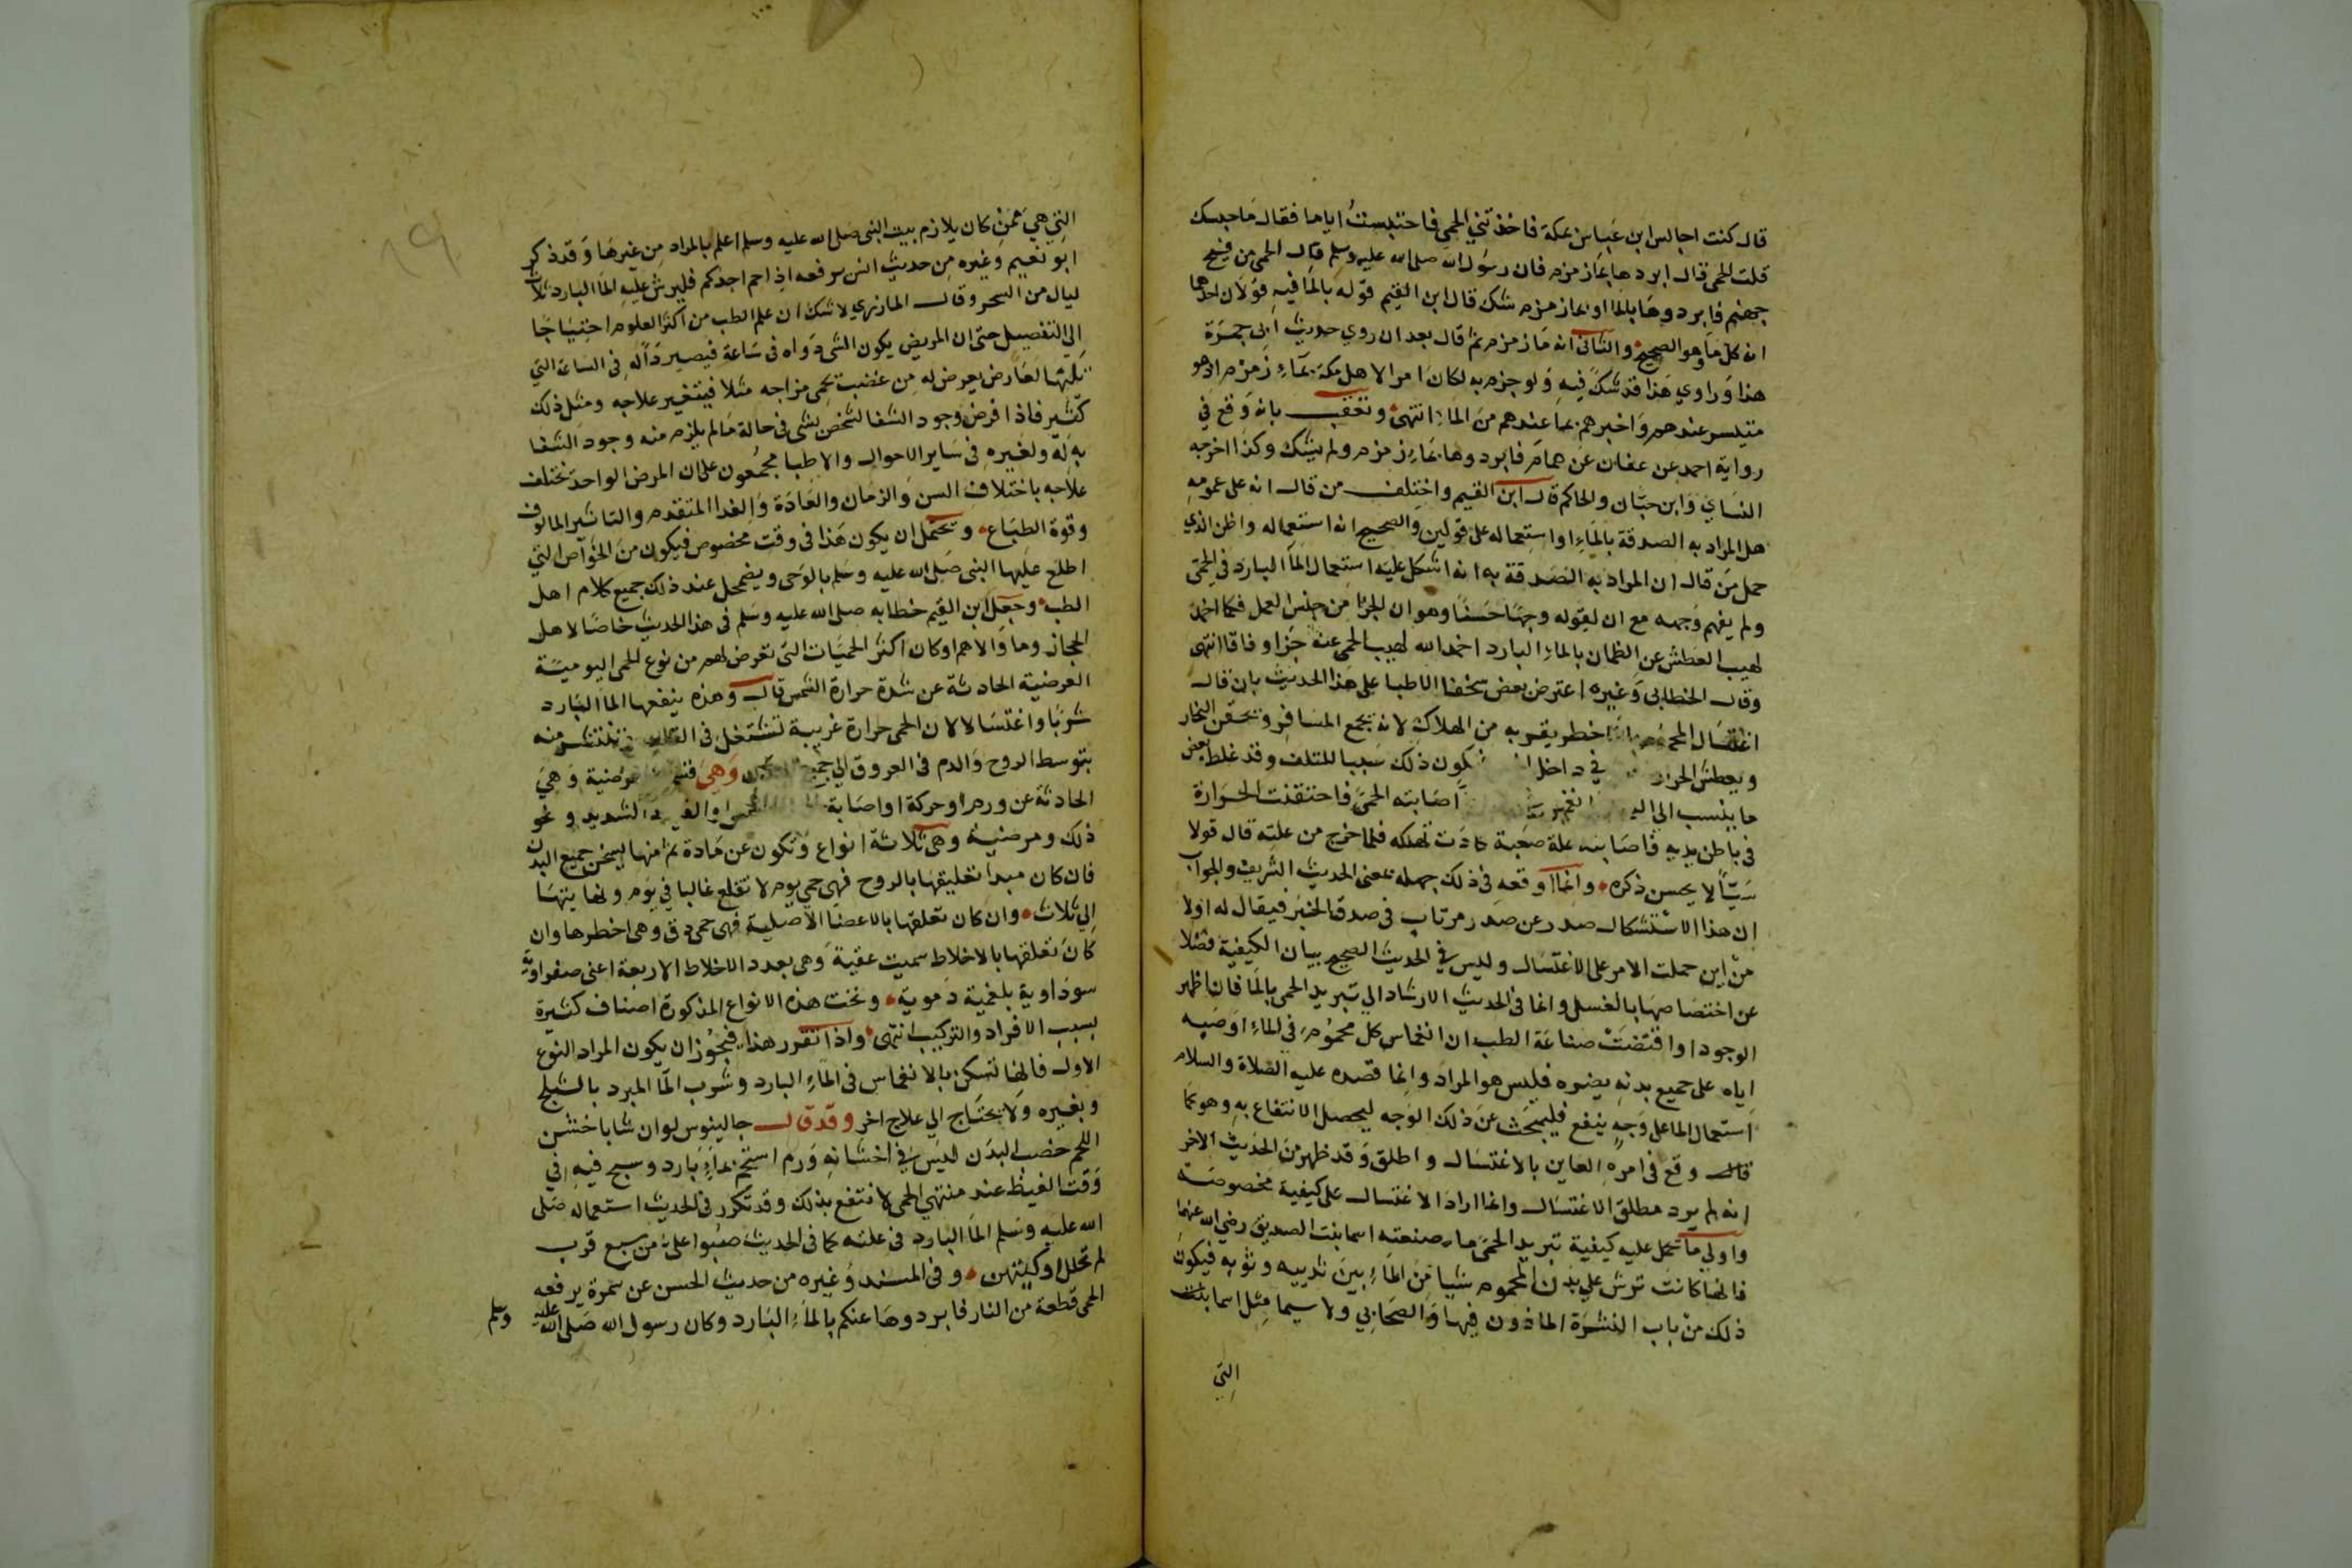 قال كنت اجالس ابن عباس بمكة فاخذتني الحمى فاحتبست اياما فقال ما حبسك
قلت الحمى قال ابردها بماء زمزم فان رسول الله صلى الله عليه وسلم قال الحمى من فيح
جهنم فابردوها بالماء او بماء زمزم شك قال ابن القيم قوله بالماء فيه قولان احدهما
انه كل ماء وهو الصحيح والثاني انه ماء زمزم ثم قال بعد ان روي حديث ابي جمرة
هذا وراوي هذا قد شك فيه ولو جزم به لكان امرا لاهل مكة بماء زمزم اذ هو
متيسر عندهم واخبرهم بما عندهم من الماء انتهى وتعقب بانه وقع في
رواية احمد عن عفان عن همام فابردوها بماء زمزم ولم يشك وكذا اخرجه
النساي وابن حبان والحاكم قال ابن القيم واختلف من قال انه على عمومه
هل المراد به الصدقة بالماء او استعماله على قولين والصحيح انه استعماله واظن الذي
حمل من قال ان المراد به الصدقة به انه اشكل عليه استعمال الماء البارد في الحمى
ولم يفهم وجهه مع ان لقوله وجها حسنا وهو ان الجزا من جنس العمل فكما اخمد
لهيب العطش عن الظمان بالماء البارد اخمد الله لهيب الحمى عنه جزاء وفاقا انتهى
وقال الخطابي وغيره اعترض بعض سخفا الاطبا على هذا الحديث بان قال
اغتسال المحموم بالماء خطر يقربه من الهلاك لانه يجمع المسام ويحقن البخار
ويعطش الحرار في داخل فيكون ذلك سببا للتلف وقد غلط بعض
ما ينسب الي اصابته الحمى فاحتقنت الحرارة
في باطن بدنه فاصابته علة صعبة كادت تهلكه فلما خرج من علته قال قولا
سيئا لا يحسن ذكره وانما اوقعه في ذلك جهله بمعنى الحديث الشريف والجواب
ان هذا الاستشكال صدر عن صدر مرتاب في صدق الخبر فيقال له اولا
من اين حملت الامر على الاغتسال وليس في الحديث الصحيح بيان الكيفية فضلا
عن اختصاصها بالغسل وانما في الحديث الارشاد الي تبريد الحمى بالماء فان اظهر
الوجود او اقتضت صناعة الطب ان انغماس كل محموم في الماء او صبه
اياه على جميع بدنه يضره فليس هو المراد وانما قصده عليه الصلاة والسلام
استعمال الماء على وجه ينفع فليبحث عن ذلك الوجه ليحصل الانتفاع به وهو كما
قال وقع في امره العاين بالاغتسال واطلق وقد ظهر من الحديث الاخر
انه لم يرد مطلق الاغتسال وانما اراد الاغتسال على كيفية مخصوصة
واولى ما تحمل عليه كيفية تبريد الحمى ما صنعته اسما بنت الصديق رضي الله عنهما
فانها كانت ترش علي بدن المحموم شيا من الماء بين ثدييه وثوبه فيكون
ذلك من باب النشرة الماذون فيها والصحابي ولا سيما مثل اسما بنت
التي
التي هي ممن كان يلازم بيت النبي صلى الله عليه وسلم اعلم بالمراد من غيرها وقد ذكر
ابو نعيم وغيره من حديث انس يرفعه اذا حم احدكم فليرش عليه الماء البارد ثلاث
ليال من السحر وقال المازري لا شك ان علم الطب من اكثر العلوم احتياجا
الي التفصيل حتى ان المريض يكون الشي دواه في ساعة فيصير داء له في الساعة التي
تليها لعارض يعرض له من غضب يحمي مزاجه مثلا فيتغير علاجه ومثل ذلك
كثير فاذا فرض وجود الشفا لشخص بشي في حالة ما لم يلزم منه وجود الشفا
به له ولغيره في ساير الاحوال والاطبا مجمعون على ان المرض الواحد تختلف
علاجه باختلاف السن والزمان والعادة والغدا المتقدم والتاثير المالوف
وقوة الطباع ويحتمل ان يكون هذا في وقت مخصوص فيكون من الخواص التي
اطلع عليها النبي صلى الله عليه وسلم بالوحي ويضمحل عند ذلك جميع كلام اهل
الطب وجعل ابن القيم خطابه صلى الله عليه وسلم في هذا الحديث خاصا لاهل
الحجاز وما والاهم اوكان اكثر الحميات التي تعرض لهم من نوع الحمى اليومية
العرضية الحادثة عن شدة حرارة الشمس قال وهذه ينفعها الماء البارد
شربا واغتسالا لان الحمى حرارة غريبة تشتعل في القلب وتنتشر منه
بتوسط الروح والدم في العروق الي جميع البدن وهي قسمان عرضية وهي
الحادثة عن ورم او حركة او اصابة الشمس والقيظ الشديد ونحو
ذلك ومرضية وهي ثلاثة انواع وتكون عن مادة ثم منها يسخن جميع البدن
فان كان مبدا تعليقها بالروح فهي حمى يوم لا تقلع غالبا في يوم ونهايتها
الي ثلاث وان كان تعلقها بالاعضا الاصلية فهي حمى دق وهي اخطرها وان
كان تعلقها بالاخلاط سميت عفنية وهي بعدد الاخلاط الاربعة اعنى صفراوية
سوداوية بلغمية دموية وتحت هذه الانواع المذكورة اصناف كثيرة
بسبب الافراد والتركيب انتهى واذا تقرر هذا فيجوز ان يكون المراد النوع
الاول فانها تسكن بالانغماس في الماء البارد وشرب الماء المبرد بالثلج
وبغيره ولا يحتاج الي علاج اخر وقد قال جالينوس لو ان شابا خشن
اللحم خصب البدن ليس في احشائه ورم استحم بماء بارد وسبح فيه في
وقت القيظ عند منتهي الحمى لانتفع بذلك وقد تكرر في الحديث استعماله صلى
الله عليه وسلم الماء البارد في علته كما في الحديث صبوا علي من سبع قرب
لم تحلل اوكيتهن وفي المسند وغيره من حديث الحسن عن سمرة يرفعه
الحمى قطعة من النار فابردوها عنكم بالماء البارد وكان رسول الله صلى الله عليه وسلم